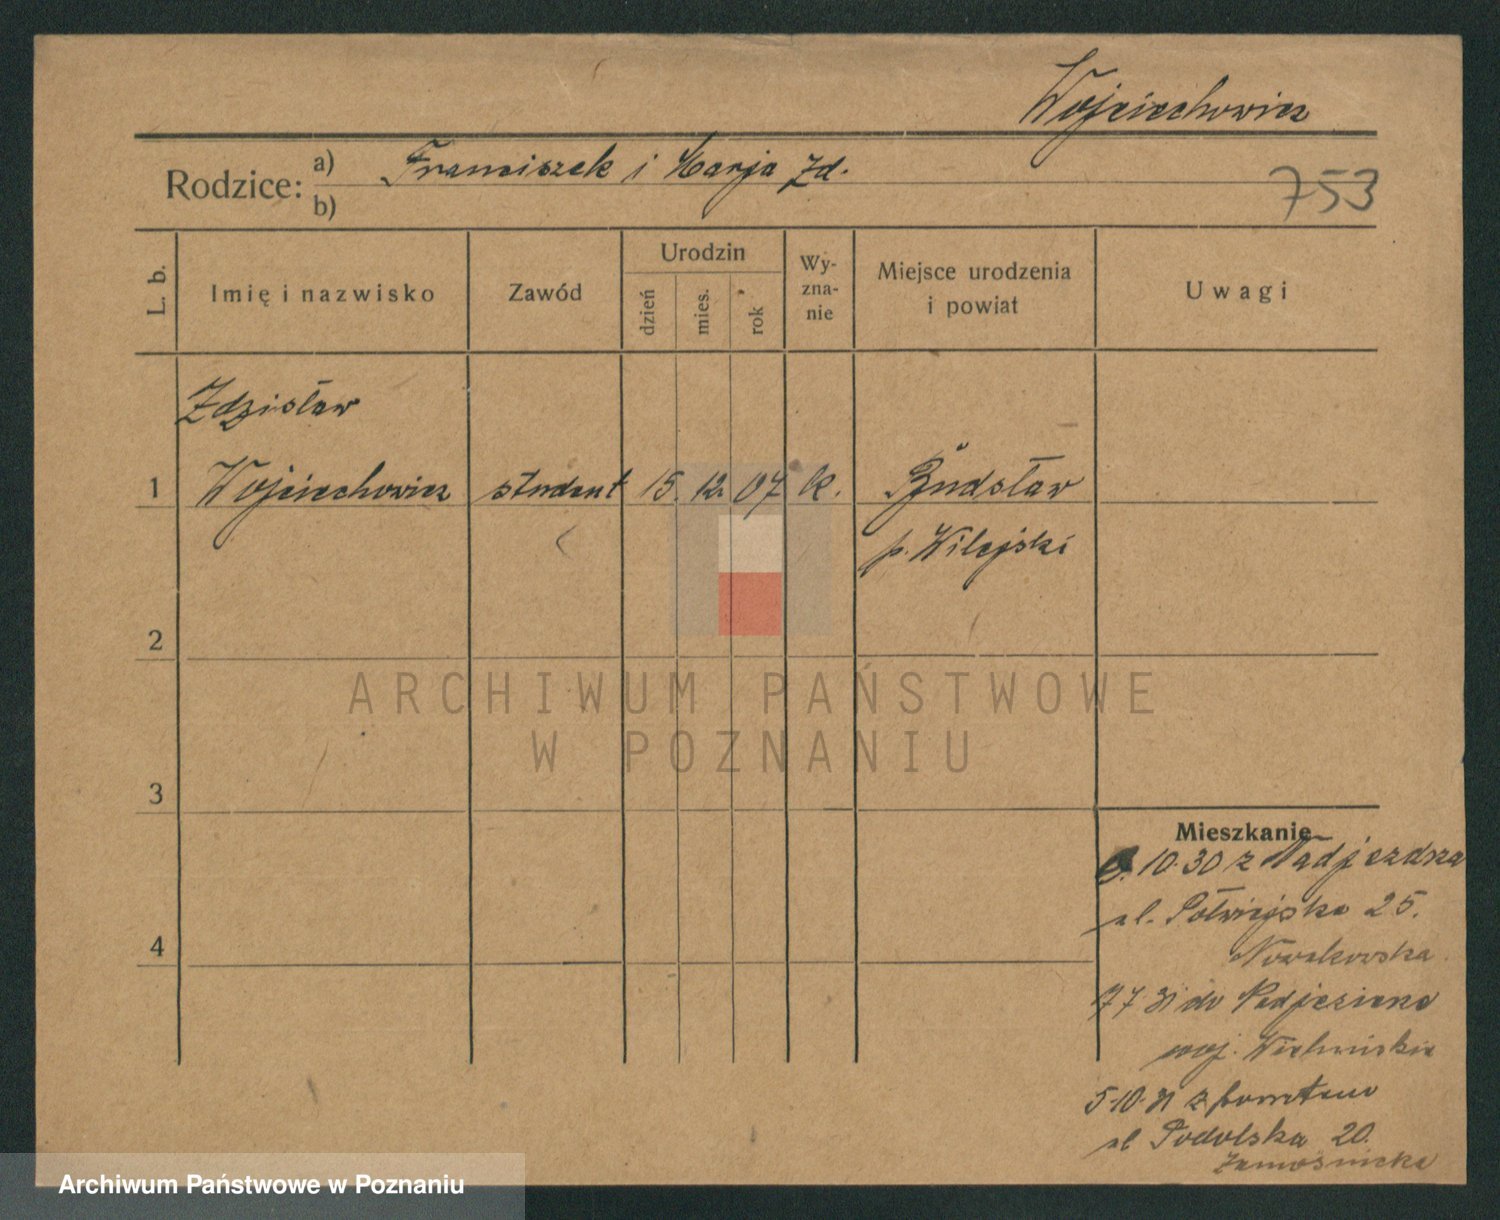 Wojciechowicz
Rodzice: a) Franciszek i Marja Zd.
b)
753
L. b.
Imię i nazwisko
Zawód
Urodzin
dzień
mies.
rok
Wy-
zna-
nie
Miejsce urodzenia
i powiat
Uwagi
Zdzisław
1 Wojciechowicz student 15. 12. 07 k. Budsław
p. Wilejski
2
ARCHIWUM PAŃSTWOWE
W POZNANIU
3
Mieszkanie
10.30 z
ul. Półwiejska 25.
Nowakowska
4
7 31 do
woj.
5.10.31 z powrotem
ul Podolska 20.
Archiwum Państwowe w Poznaniu